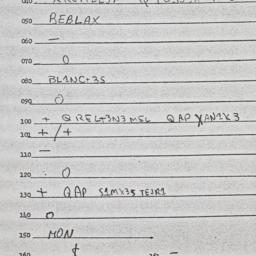 050 REBLAX
060 —
070 O
080 BL1NC+3S
090 O
100 + QREL+3N3MEL QAP XAN1X3
101 +/+
110 —
120 : O
130 + QAP S1MX35 TEJR1
140 O
150 MON
160